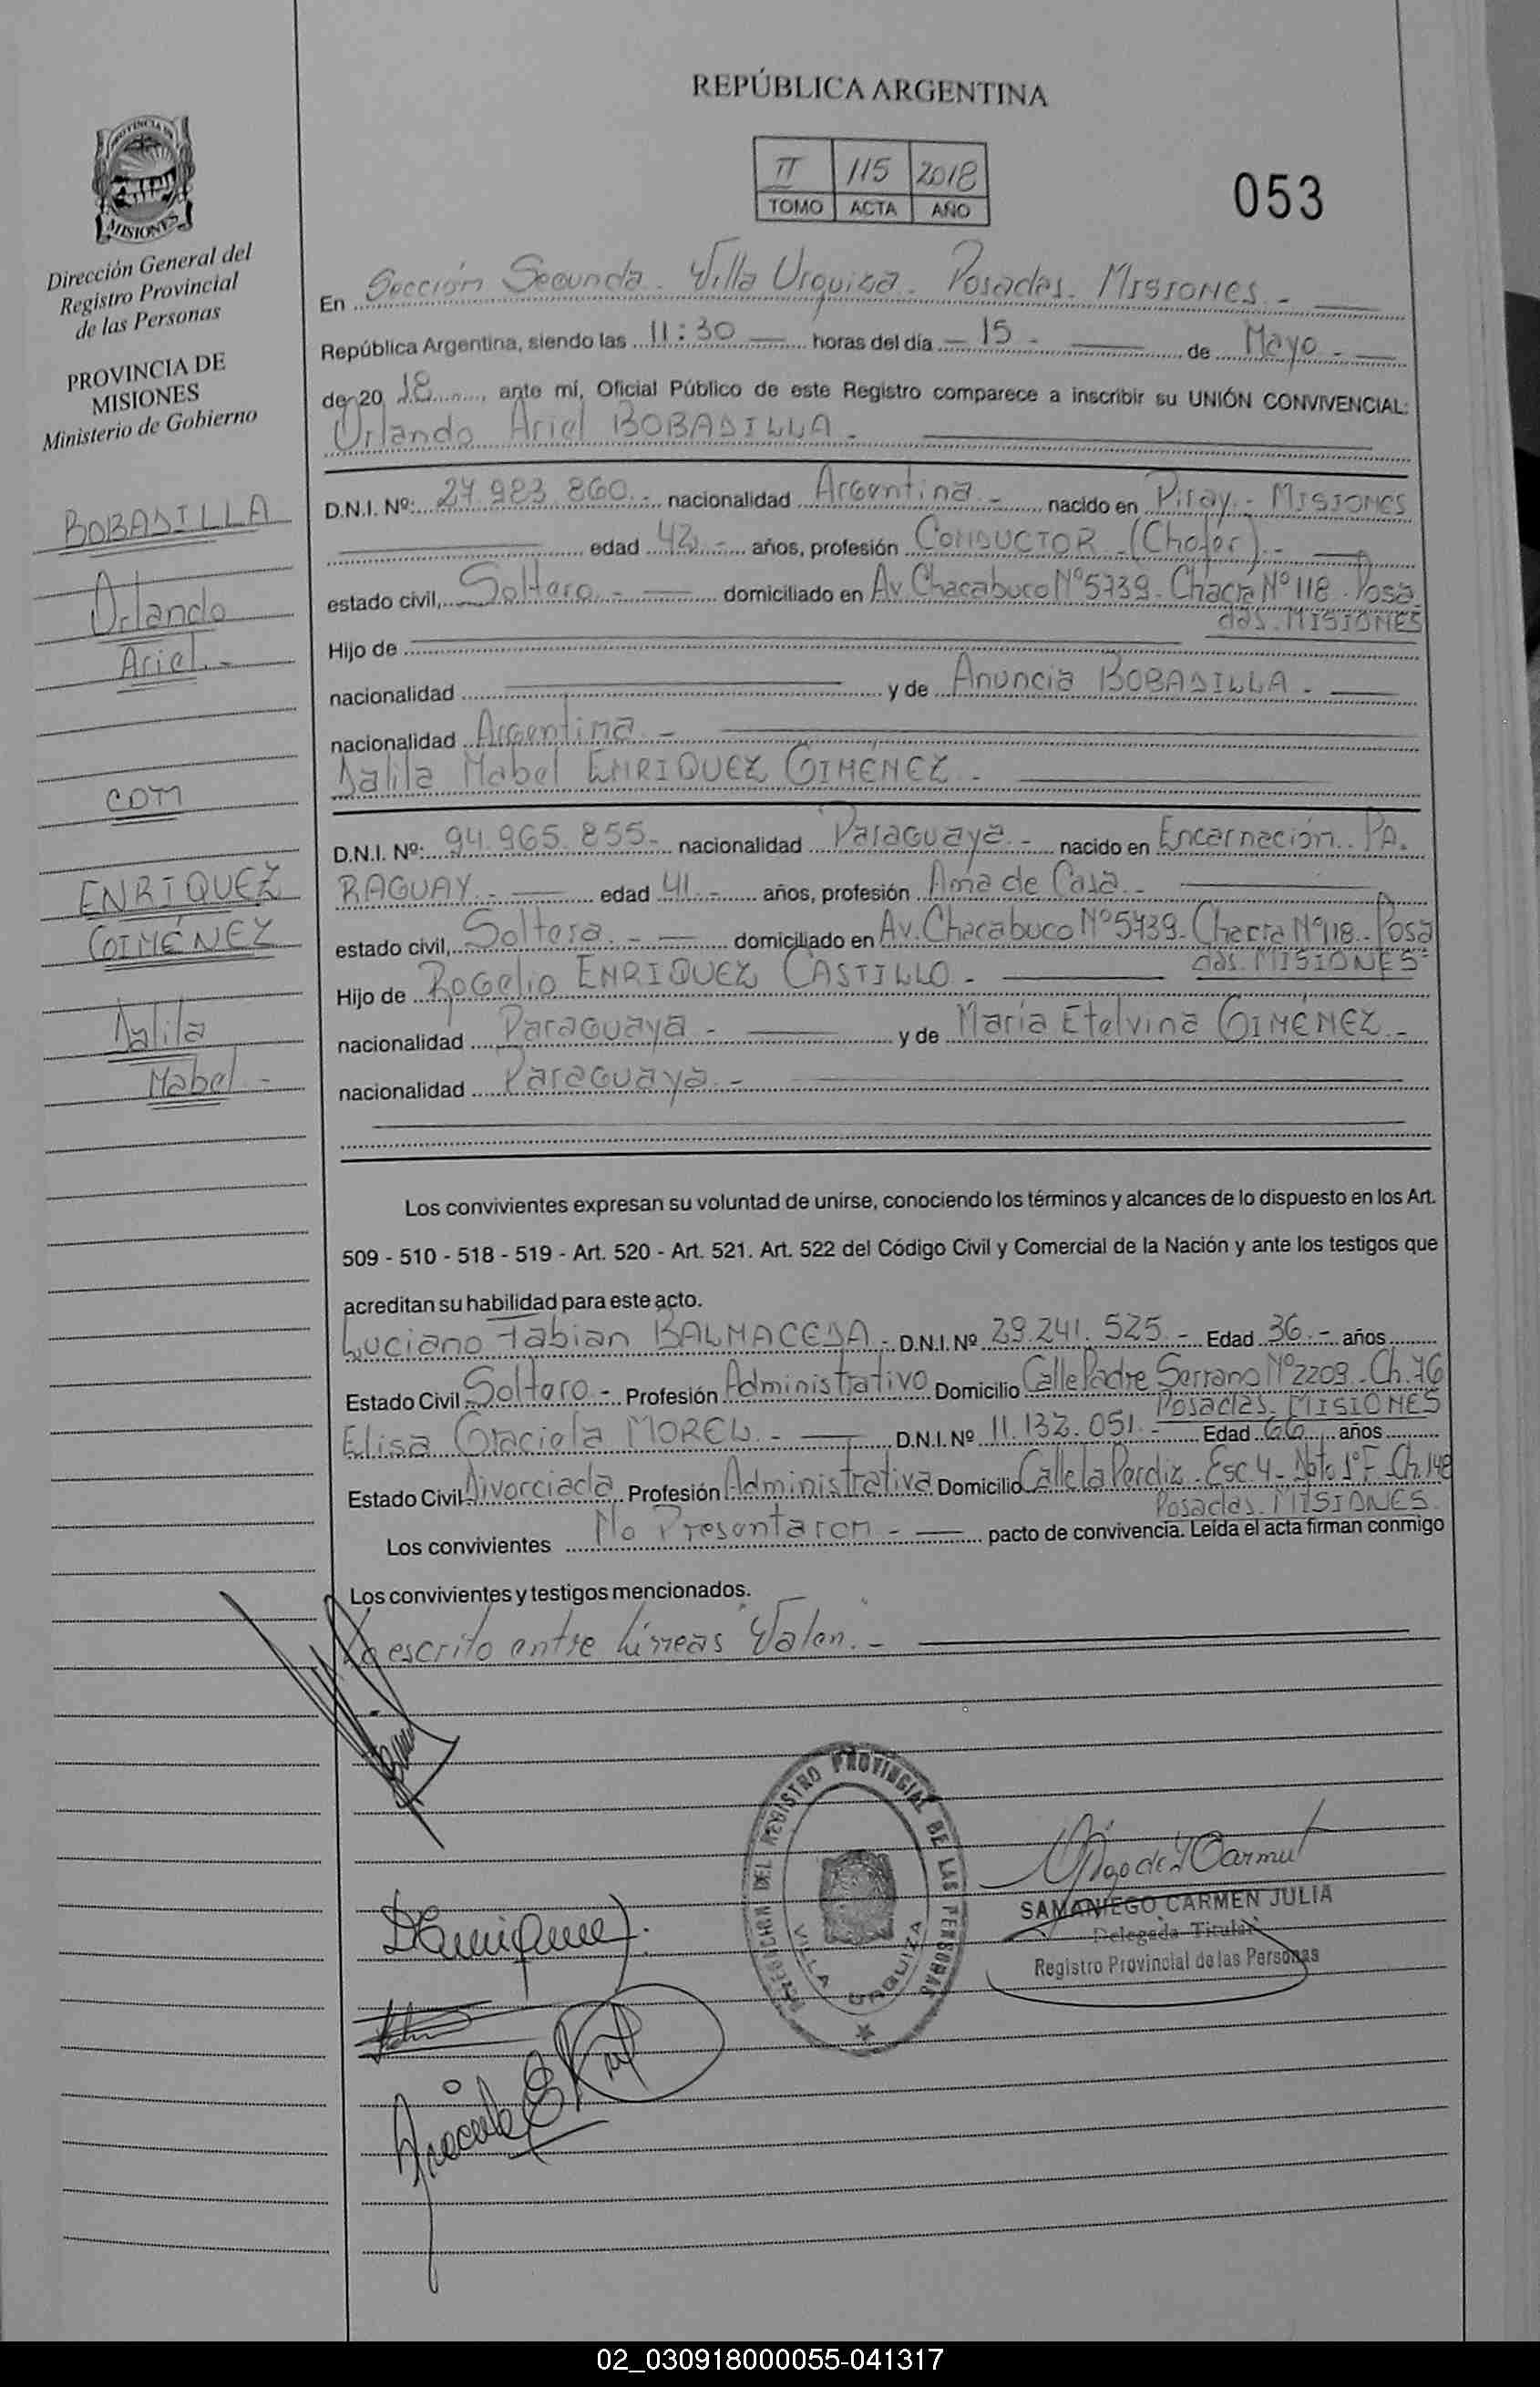 REPÚBLICA ARGENTINA
II 115 2018
TOMO ACTA AÑO
053
PROVINCIA DE
MISIONES
Dirección General del
Registro Provincial
de las Personas
PROVINCIA DE
MISIONES
Ministerio de Gobierno
BOBADILLA
Orlando
Ariel.-
con
ENRIQUEZ
GIMÉNEZ
Dalila
Mabel -
En Sección Segunda. Villa Urquiza. Posadas. MISIONES -
República Argentina, siendo las 11:30 horas del día 15 - de Mayo -
de 20 18, ante mí, Oficial Público de este Registro comparece a inscribir su UNIÓN CONVIVENCIAL:
Orlando Ariel BOBADILLA -
D.N.I. Nº: 27.983.860.- nacionalidad Argentina - nacido en Piray - MISIONES
edad 42 - años, profesión CONDUCTOR - (Chofer) -
estado civil, Soltero - domiciliado en Av. Chacabuco Nº 5739. Chacra Nº 118. Posa
das. MISIONES
Hijo de
nacionalidad y de Anuncia BOBADILLA -
nacionalidad Argentina -
Dalila Mabel ENRIQUEZ GIMÉNEZ -
D.N.I. Nº: 94.965.855- nacionalidad Paraguaya - nacido en Encarnación. PA.
RAGUAY - edad 41.- años, profesión Ama de Casa -
estado civil, Soltera. - domiciliado en Av. Chacabuco Nº 5739. Chacra Nº 118. Posa
das. MISIONES
Hijo de Rogelio ENRIQUEZ CASTILLO -
nacionalidad Paraguaya - y de María Etelvina GIMÉNEZ -
nacionalidad Paraguaya -
Los convivientes expresan su voluntad de unirse, conociendo los términos y alcances de lo dispuesto en los Art.
509 - 510 - 518 - 519 - Art. 520 - Art. 521. Art. 522 del Código Civil y Comercial de la Nación y ante los testigos que
acreditan su habilidad para este acto.
Luciano Fabian BALMACEDA - D.N.I. Nº 29.241.525 - Edad 36 - años
Estado Civil Soltero - Profesión Administrativo Domicilio Calle Padre Serrano Nº 2209. Ch. 76
Posadas. MISIONES
Elisa Graciela MOREL - D.N.I. Nº 11.132.051 - Edad 66 años
Estado Civil Divorciada Profesión Administrativa Domicilio Calle la Perdiz - Esc. 4 - Dpto 1º F - Ch. 148
Posadas. MISIONES
Los convivientes No Presentaron - pacto de convivencia. Leída el acta firman conmigo
Los convivientes y testigos mencionados.
Lo escrito entre líneas "Valen". -
DEL REGISTRO PROVINCIAL DE LAS PERSONAS
VILLA URQUIZA
SAMANIEGO CARMEN JULIA
Delegada Titular
Registro Provincial de las Personas
02_030918000055-041317